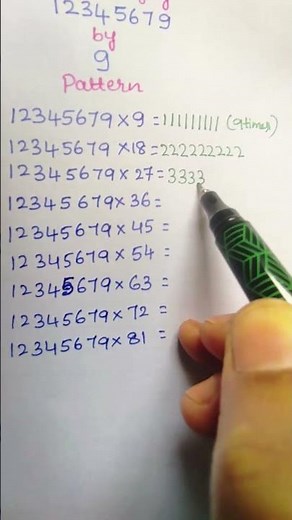 12345679
by
9
Pattern
12345679×9=111111111 (9times)
12345679×18=222222222
12345679×27=3333
12345679×36=
12345679×45=
12345679×54=
12345679×63=
12345679×72=
12345679×81=